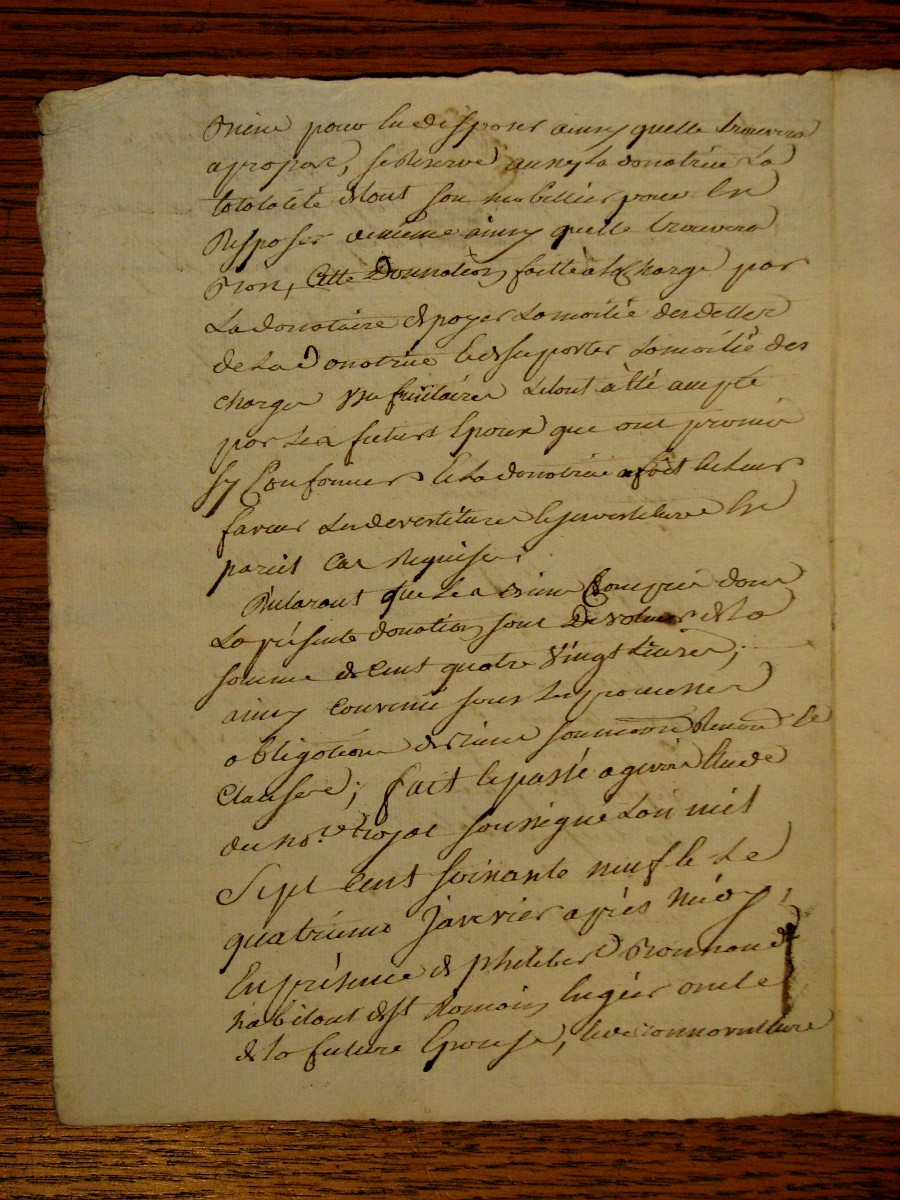 pour en disposer ainsy quelle trouvera
a propos, se Reserve aussy La donatrice La
totalité de tout son mobillier pour En
disposer de meme ainsy quelle trouvera
bon, Cette Donnation faitte a la Charge par
La donataire de payer La moitié des dettes
de La Donatrice et de suporter La moitié des
charges usufruitaires Le tout à été accepté
par Les futurs Epoux que ont promis
sy Conformer et La donatrice a fait en Leur
faveur Les devestitures et jnvestitures En
pareil Cas Requises.
Declarant que Les biens Compris dans
La présente donation sont De valeur de La
somme de Cent quatre Vingt Livres,
ainsy convenu sous Les promesses
obligations de biens soumissions Renon. et
Clauses; fait et passé a Etude
du no.re Royal soussigné L'an mil
Sept Cent soixante neuf et Le
quatrieme Janvier après midy,
En présence de philibert
habitant de st Romain oncle
de la future Epouse,